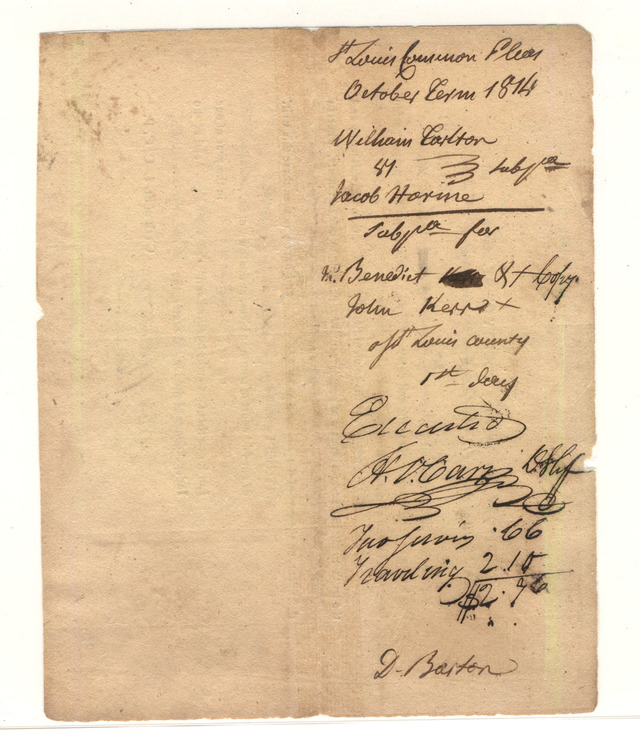 St Louis Common Pleas
October Term 1814
William Tarlton
vs } Subpa
Jacob Horine
Subpa for
Benedict & + Copy
John Kerr +
of St Louis county
1st day
Executed
Two serving .66
Traveling 2.10
$2.76
D. Barton